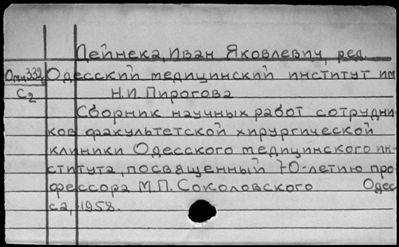 Дейнека, Иван Яковлевич, ред.
Одесский медицинский институт им
С2 Н.И. Пирогова
Сборник научных работ сотрудни-
ков факультетской хирургической
клиники Одесского медицинского ин-
ститута, посвященный 70-летию про-
фессора М.П. Соколовского Одес
са, 1958.